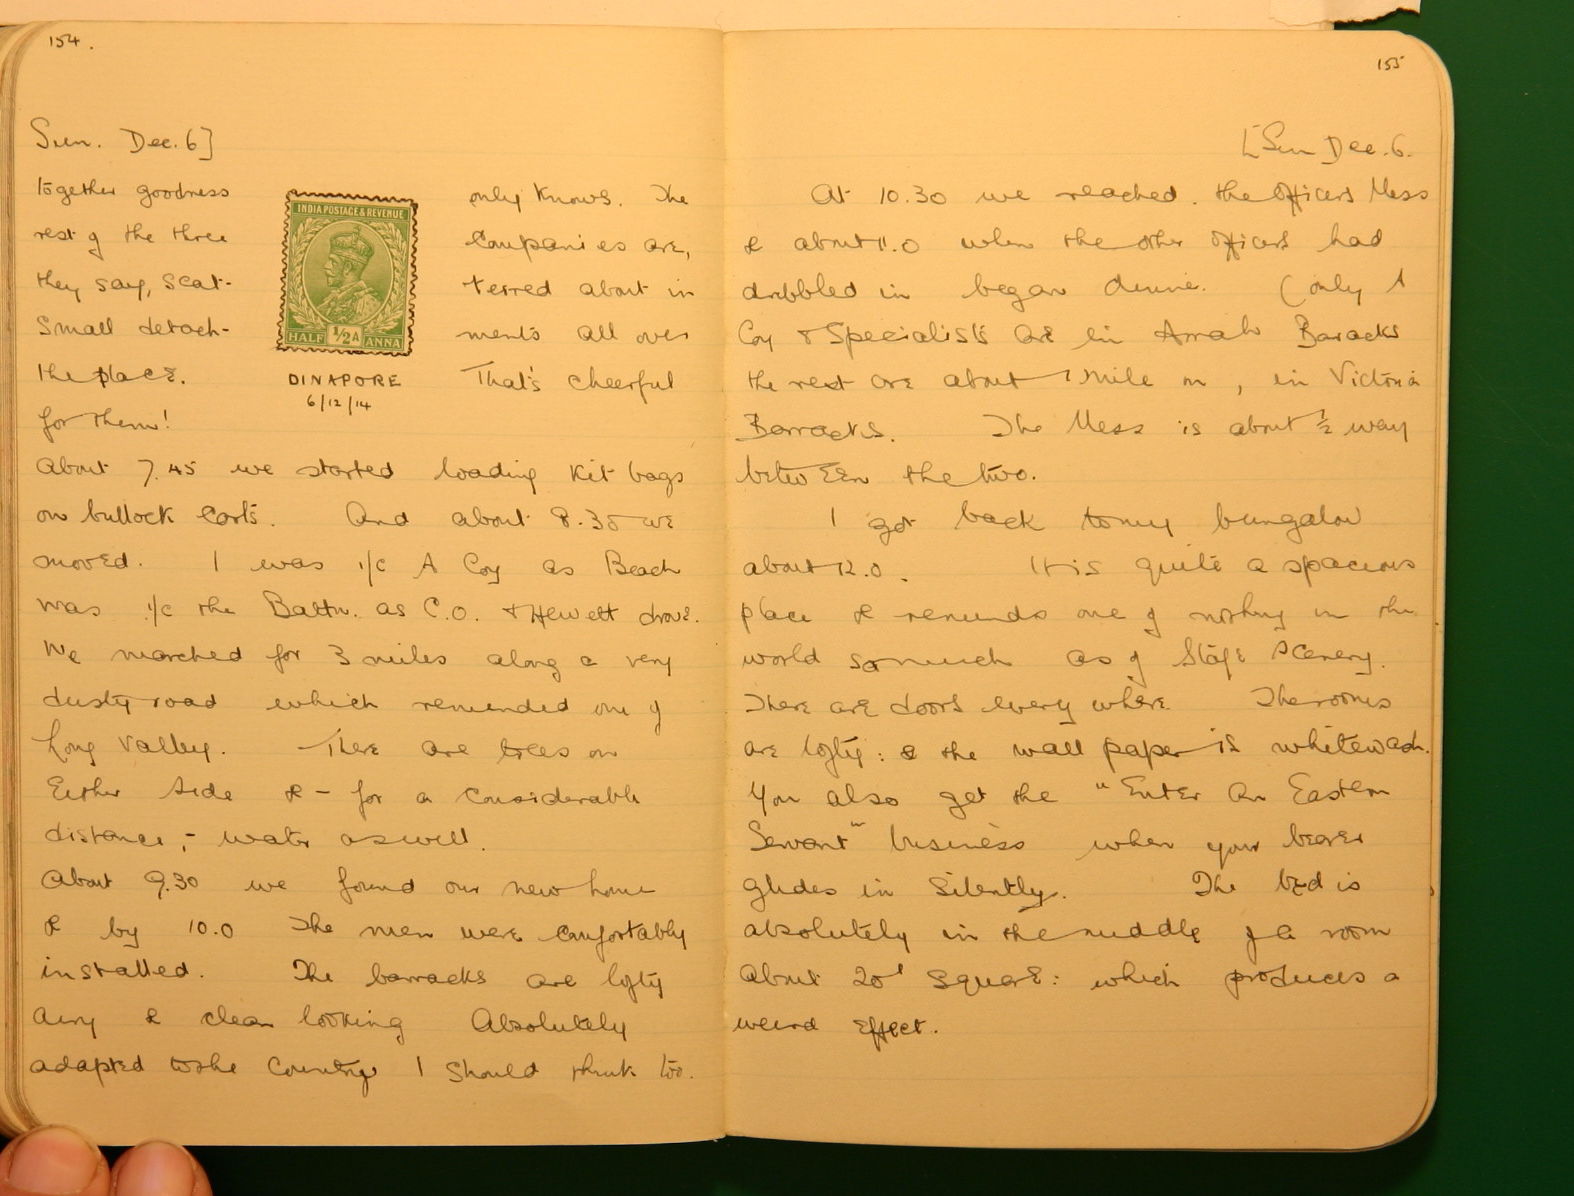 154.
Sun. Dec. 6]
together goodness only knows. The
rest of the three Companies are,
they say, scat- terred about in
small detach- ments all over
the place. That's cheerful
for them!
INDIA POSTAGE & REVENUE
HALF 1/2A ANNA
DINAPORE
6/12/14
About 7.45 we started loading kit bags
on bullock carts. And about 8.30 we
moved. I was i/c A Coy as Beach
was i/c the Battn. as C.O. & Hewett drove.
We marched for 3 miles along a very
dusty road which reminded one of
Long Valley. There are trees on
Either side & - for a considerable
distance, - water as well.
About 9.30 we found our new home
& by 10.0 The men were comfortably
installed. The barracks are lofty
airy & clean looking Absolutely
adapted to the Country I should think too.
155
[Sun Dec. 6.
At 10.30 we reached the Officers Mess
& about 11.0 when the other officers had
dribbled in began dinner. (only A
Coy & Specialists are in Arrah Baracks
the rest are about 1 mile on, in Victoria
Barracks. The Mess is about 1/2 way
between the two.
I got back to my bungalow
about 12.0. It is quite a spacious
place & reminds one of nothing in the
world so much as of Stage Scenery.
There are doors every where The rooms
are lofty: & the wall paper is whitewash.
You also get the "Enter An Eastern
Servant" business when your bearer
glides in silently. The bed is
absolutely in the middle of a room
about 20' square: which produces a
weird effect.